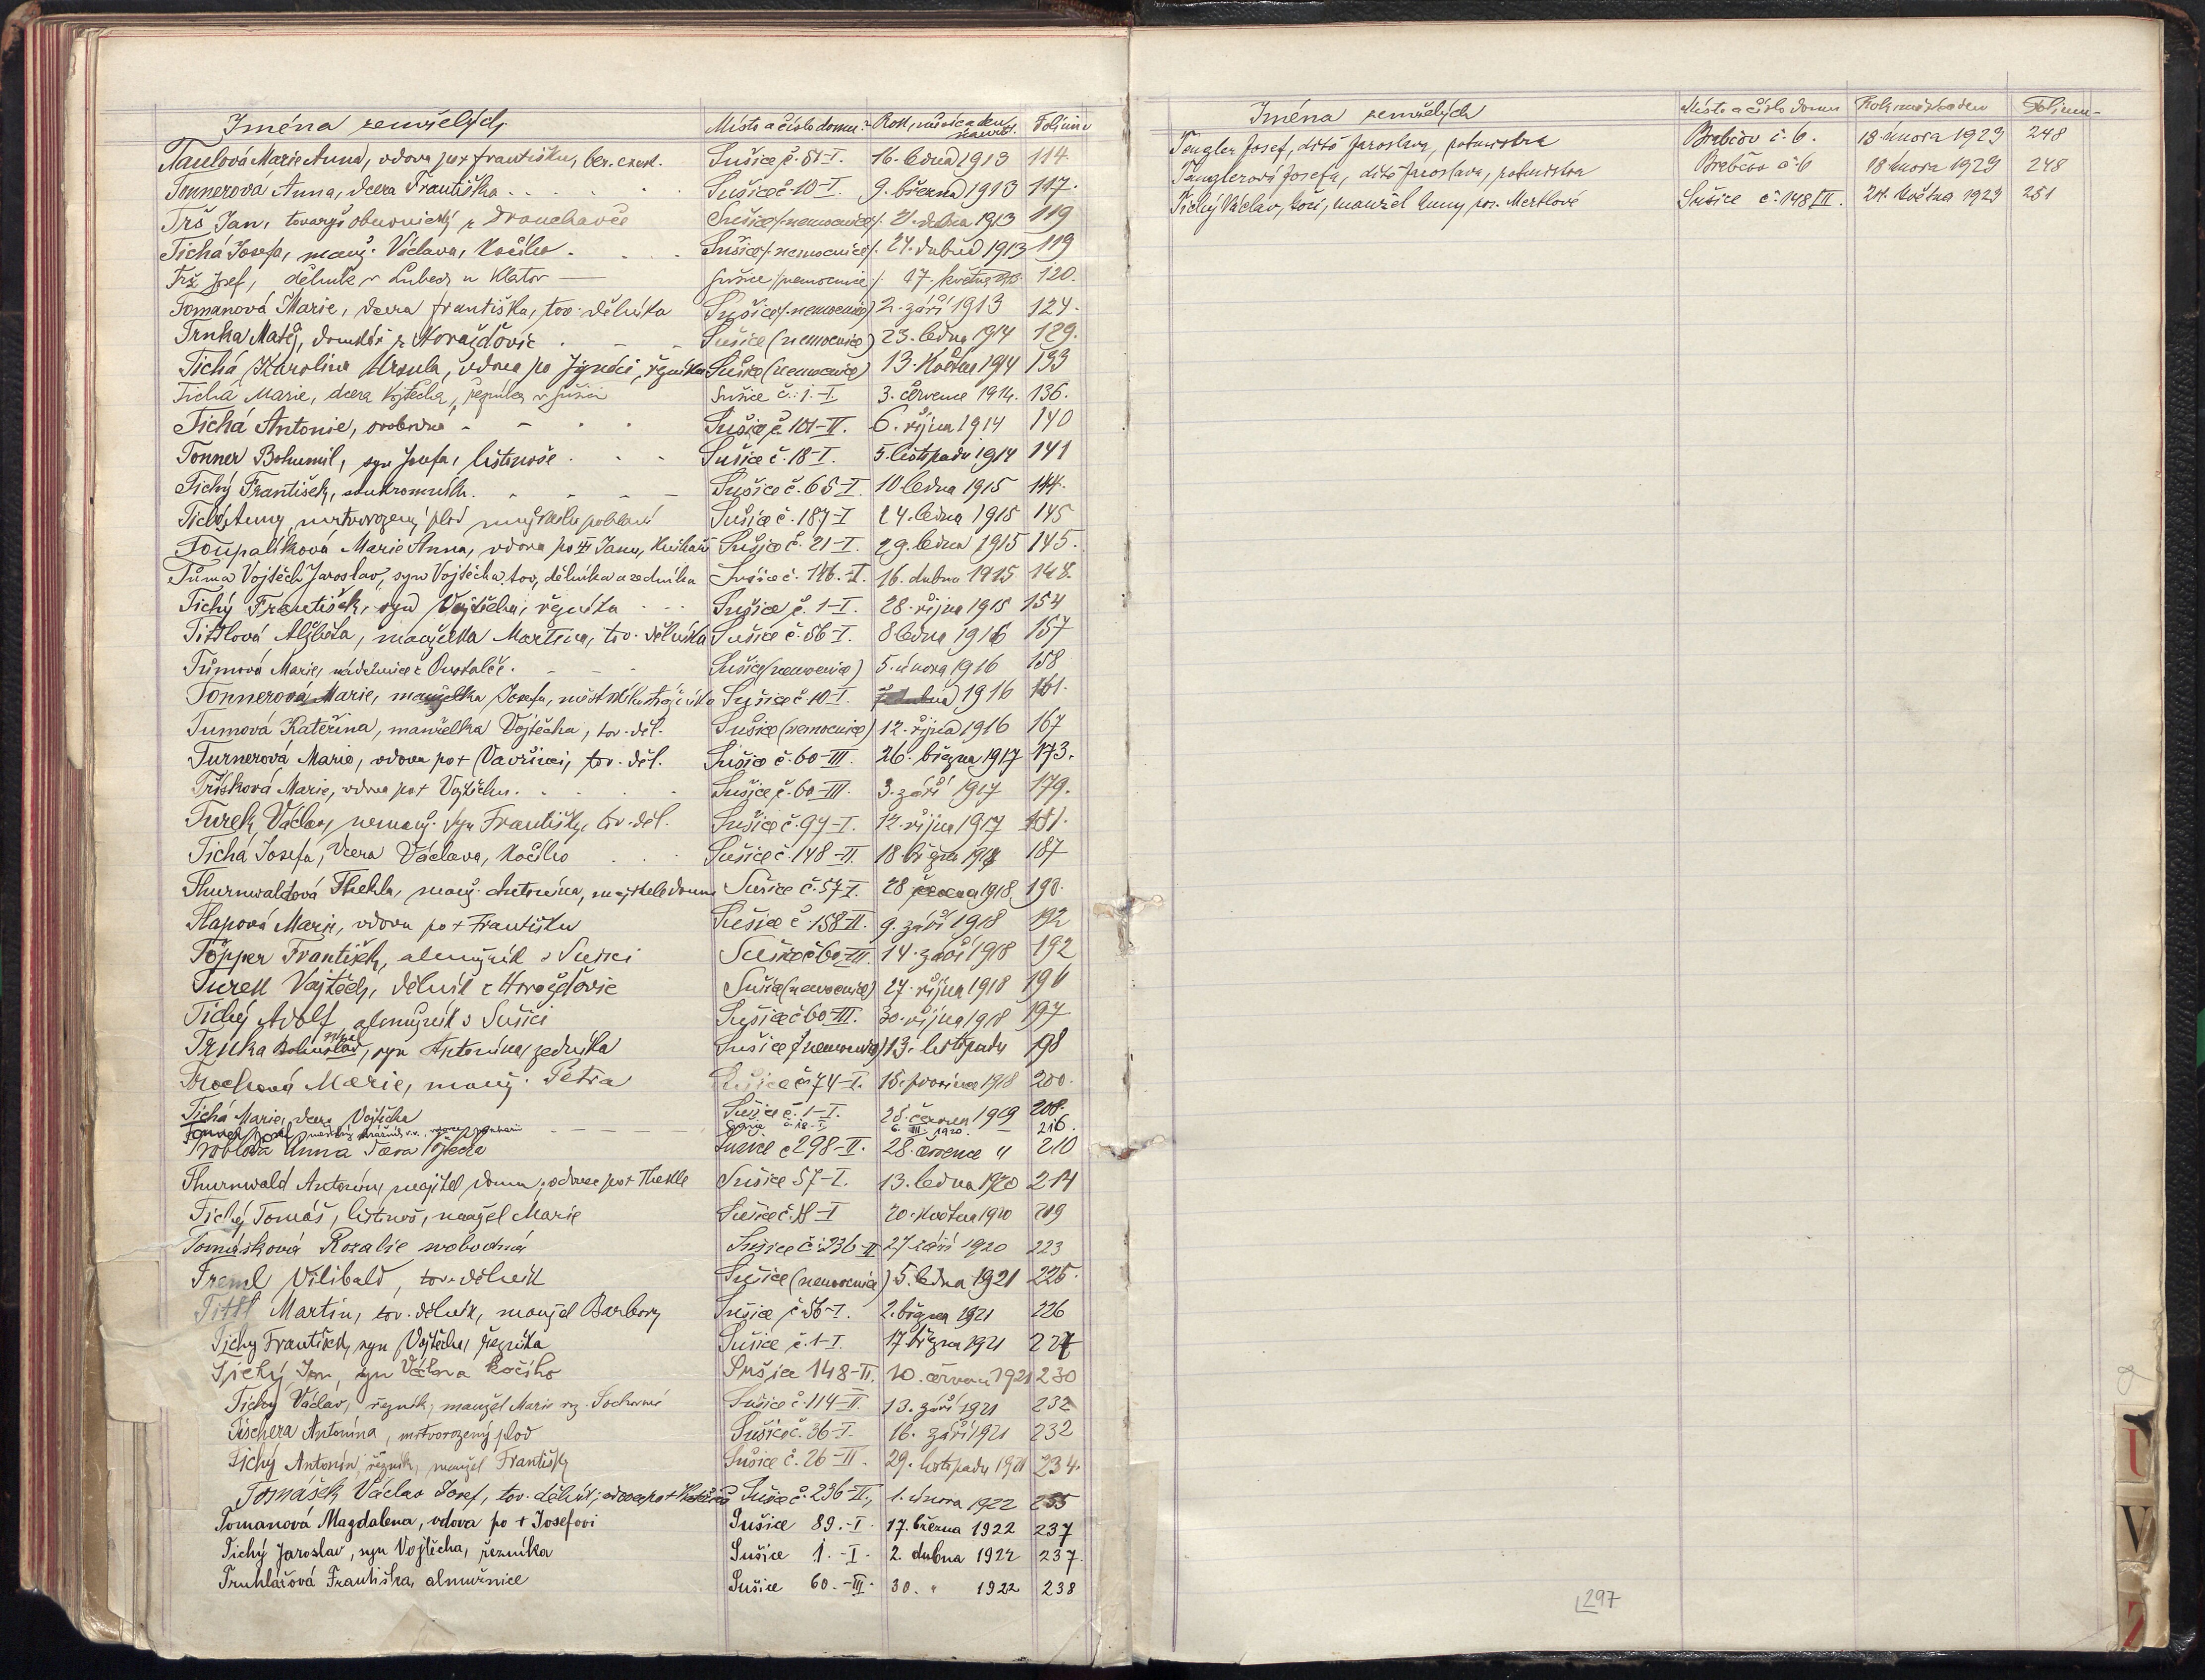 Jména zemřelých Místo a číslo domu Rok, měsíc a den úmrtí Folium
Taulová Marie Anna, vdova po † Františku, Sušice č. 51-I. 16. ledna 1913 114
Tonnerová Anna, dcera Františka Sušice č. 10-I. 9. března 1913 117.
Trš Jan, tovaryš obuvnický z Sušice /nemocnice/. 21. dubna 1913 119
Tichá Josefa, manž. Václava, kočího Sušice /nemocnice/. 24. dubna 1913 119
Trž Josef, dělník z u Klatov Sušice /nemocnice/ 17. května 1913. 120.
Tomanová Marie, dcera Františka, tov. dělníka Sušice (nemocnice) 2. září 1913 124.
Trnka Matěj, domkář z Horažďovic Sušice (nemocnice) 23. ledna 1914 129.
Tichá Karolina Ursula, vdova po Ignáci, řezníka Sušice (nemocnice) 13. května 1914 133
Tichá Marie, dcera Vojtěcha, řezníka v Sušici Sušice č. 1.-I. 3. července 1914. 136.
Tichá Antonie, svobodná Sušice č. 101-II. 6. října 1914 140
Tonner Bohumil, syn Josefa, listonoše Sušice č. 18-I. 5. listopadu 1914 141
Tichý František, soukromník Sušice č. 65-I. 10 ledna 1915 144.
Tichý Anny, mrtvorozený plod mužského pohlaví Sušice č. 187-I 24. ledna 1915 145
Toupalíková Marie Anna, vdova po † Janu, Sušice č. 21-I. 29. ledna 1915 145.
Tůma Vojtěch Jaroslav, syn Vojtěcha, tov. dělníka a zedníka Sušice č. 146.-I. 16. dubna 1915 148.
Tichý František, syn Vojtěcha, řezníka Sušice č. 1-I. 28. října 1915 154
Tittlová Alžběta, manželka Martina, tov. dělníka Sušice č. 56-I. 8 ledna 1916 157
Tůmová Marie, nádenice z Sušice (nemocnice) 5. února 1916 158
Tonnerová Marie, manželka Josefa, Sušice č 10-I. dubna 1916 161.
Tumová Kateřina, manželka Vojtěcha, tov. děl. Sušice (nemocnice) 12. října 1916 167
Turnerová Marie, vdova po † Vavřinci, tov. děl. Sušice č. 60-III. 26. března 1917 173.
Třísková Marie, vdova po † Vojtěchu. Sušice č. 60-III. 3. září 1917 179.
Turek Václav, nemanž. syn Františky, tov. děl. Sušice č. 94-I. 12. října 1917 181.
Tichá Josefa, dcera Václava, kočího Sušice č. 148-II. 18 března 1918 187
Thurnwaldová Thekla, manž. Antonína, majitele domu Sušice č. 57-I. 28 1918 190.
Tlapová Marie, vdova po † Františku Sušice č. 158-II. 9. září 1918 192
Töpper František, almužník v Sušici Sušice č 60-III. 14. září 1918 192
Turek Vojtěch, dělník z Horažďovic Sušice (nemocnice) 27. října 1918 196
Tichý Adolf, almužník v Sušici Sušice č 60-III. 30. října 1918 197
Trnka Bohuslav, syn Antonína, zedníka Sušice (nemocnice) 13. listopadu 198
Marie, manž. Petra Sušice č. 74-I. 15. prosince 1918 200.
Tichá Marie, dcera Vojtěcha Sušice č. 1-I. 28. června 1919 208.
Tonner Josef, vdovec č. 18-I. 6. III. 1920. 216.
Anna dcera Vojtěcha Sušice č 298-II. 28. července " 210
Thurnwald Antonín, majitel domu, vdovec po † Thekle Sušice 57-I. 13. ledna 1920 214
Tichý Tomáš, listonoš, manžel Marie Sušice č. 18-I 20. května 1920 219
Tomášková Rozalie svobodná Sušice č. 236-II 27 září 1920 223
Treml Vilibald, tov. dělník Sušice (nemocnice) 5. ledna 1921 225.
Tittl Martin, tov. dělník, manžel Barbory Sušice č 56-I. 2. března 1921 226
Tichý František, syn Vojtěcha, řezníka Sušice č. 1-I. 17 března 1921 227
Tichý Jan, syn Václava kočího Sušice 148-II. 20. června 1921 230
Tichý Václav, řezník, manžel Marie roz. Sušice č. 114-II. 13. září 1921 232
Tischera Antonína, mrtvorozený plod Sušice č. 36-I. 16. září 1921 232
Tichý Antonín, řezník, manžel Františky Sušice č. 26-II. 29. listopadu 1921 234.
Tomášek Václav Josef, tov. dělník, vdovec po † Sušice č. 236-II., 1. února 1922 235
Tomanová Magdalena, vdova po † Josefovi Sušice 89.-I. 17. března 1922 237
Tichý Jaroslav, syn Vojtěcha, řezníka Sušice 1.-I. 2. dubna 1922 237.
Truhlářová Františka, almužnice Sušice 60.-III. 30. " 1922 238
Jména zemřelých Místo a číslo domu Rok, měsíc a den Folium
Tengler Josef, dítě Jaroslava, Brabčov č. 6. 18. února 1923 248
Tenglerová Josefa, dítě Jaroslava, Brabčov č 6 18. února 1923 248
Tichý Václav, kočí, manžel Anny roz. Mertlové Sušice č. 148 III. 24. května 1923 251
297
U
V
Z